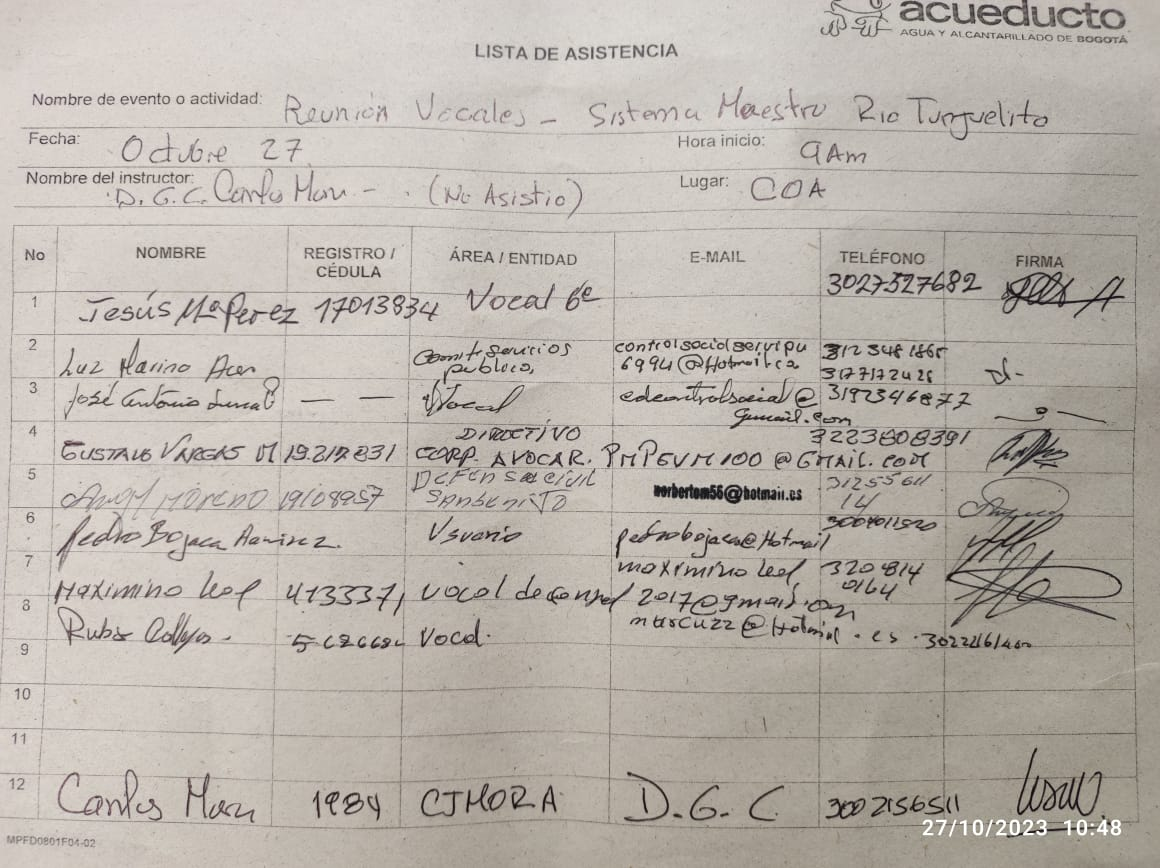 acueducto
AGUA Y ALCANTARILLADO DE BOGOTÁ
LISTA DE ASISTENCIA
Nombre de evento o actividad: Reunión Vocales - Sistema Maestro Rio Tunjuelito
Fecha: Octubre 27 Hora inicio: 9Am
Nombre del instructor: D.G.C. Carlos Mora - (No Asistio) Lugar: COA
No NOMBRE REGISTRO / CÉDULA ÁREA / ENTIDAD E-MAIL TELÉFONO FIRMA
1 Jesús Mª Perez 17013834 Vocal 6ª 3027527682
2 Luz Marina publico, controlsocialservipu
6994@Hotmail.ca
3 José Antonio — — Vocal @ gmail.com
4 GUSTAVO VARGAS M 19.217.831 DIRECTIVO
CORP. AVOCAR. PMPGVM100@GMAIL.COM 3223808391
5 MORENO DEFENSA CIVIL
norbertom56@hotmail.es 31255611
14
6 Pedro Bojaca Ramirez. Usuario pedrobojaca@Hotmail
7 Maximino Leal 413337, vocal de control maximino leal,
2017@gmail.com 320814
0164
8 Vocal. marcuzz@Hotmail.es
9
10
11
12 Carlos Mora 1984 CJMORA D.G.C 3002156511
MPFD0801F04-02
27/10/2023 10:48